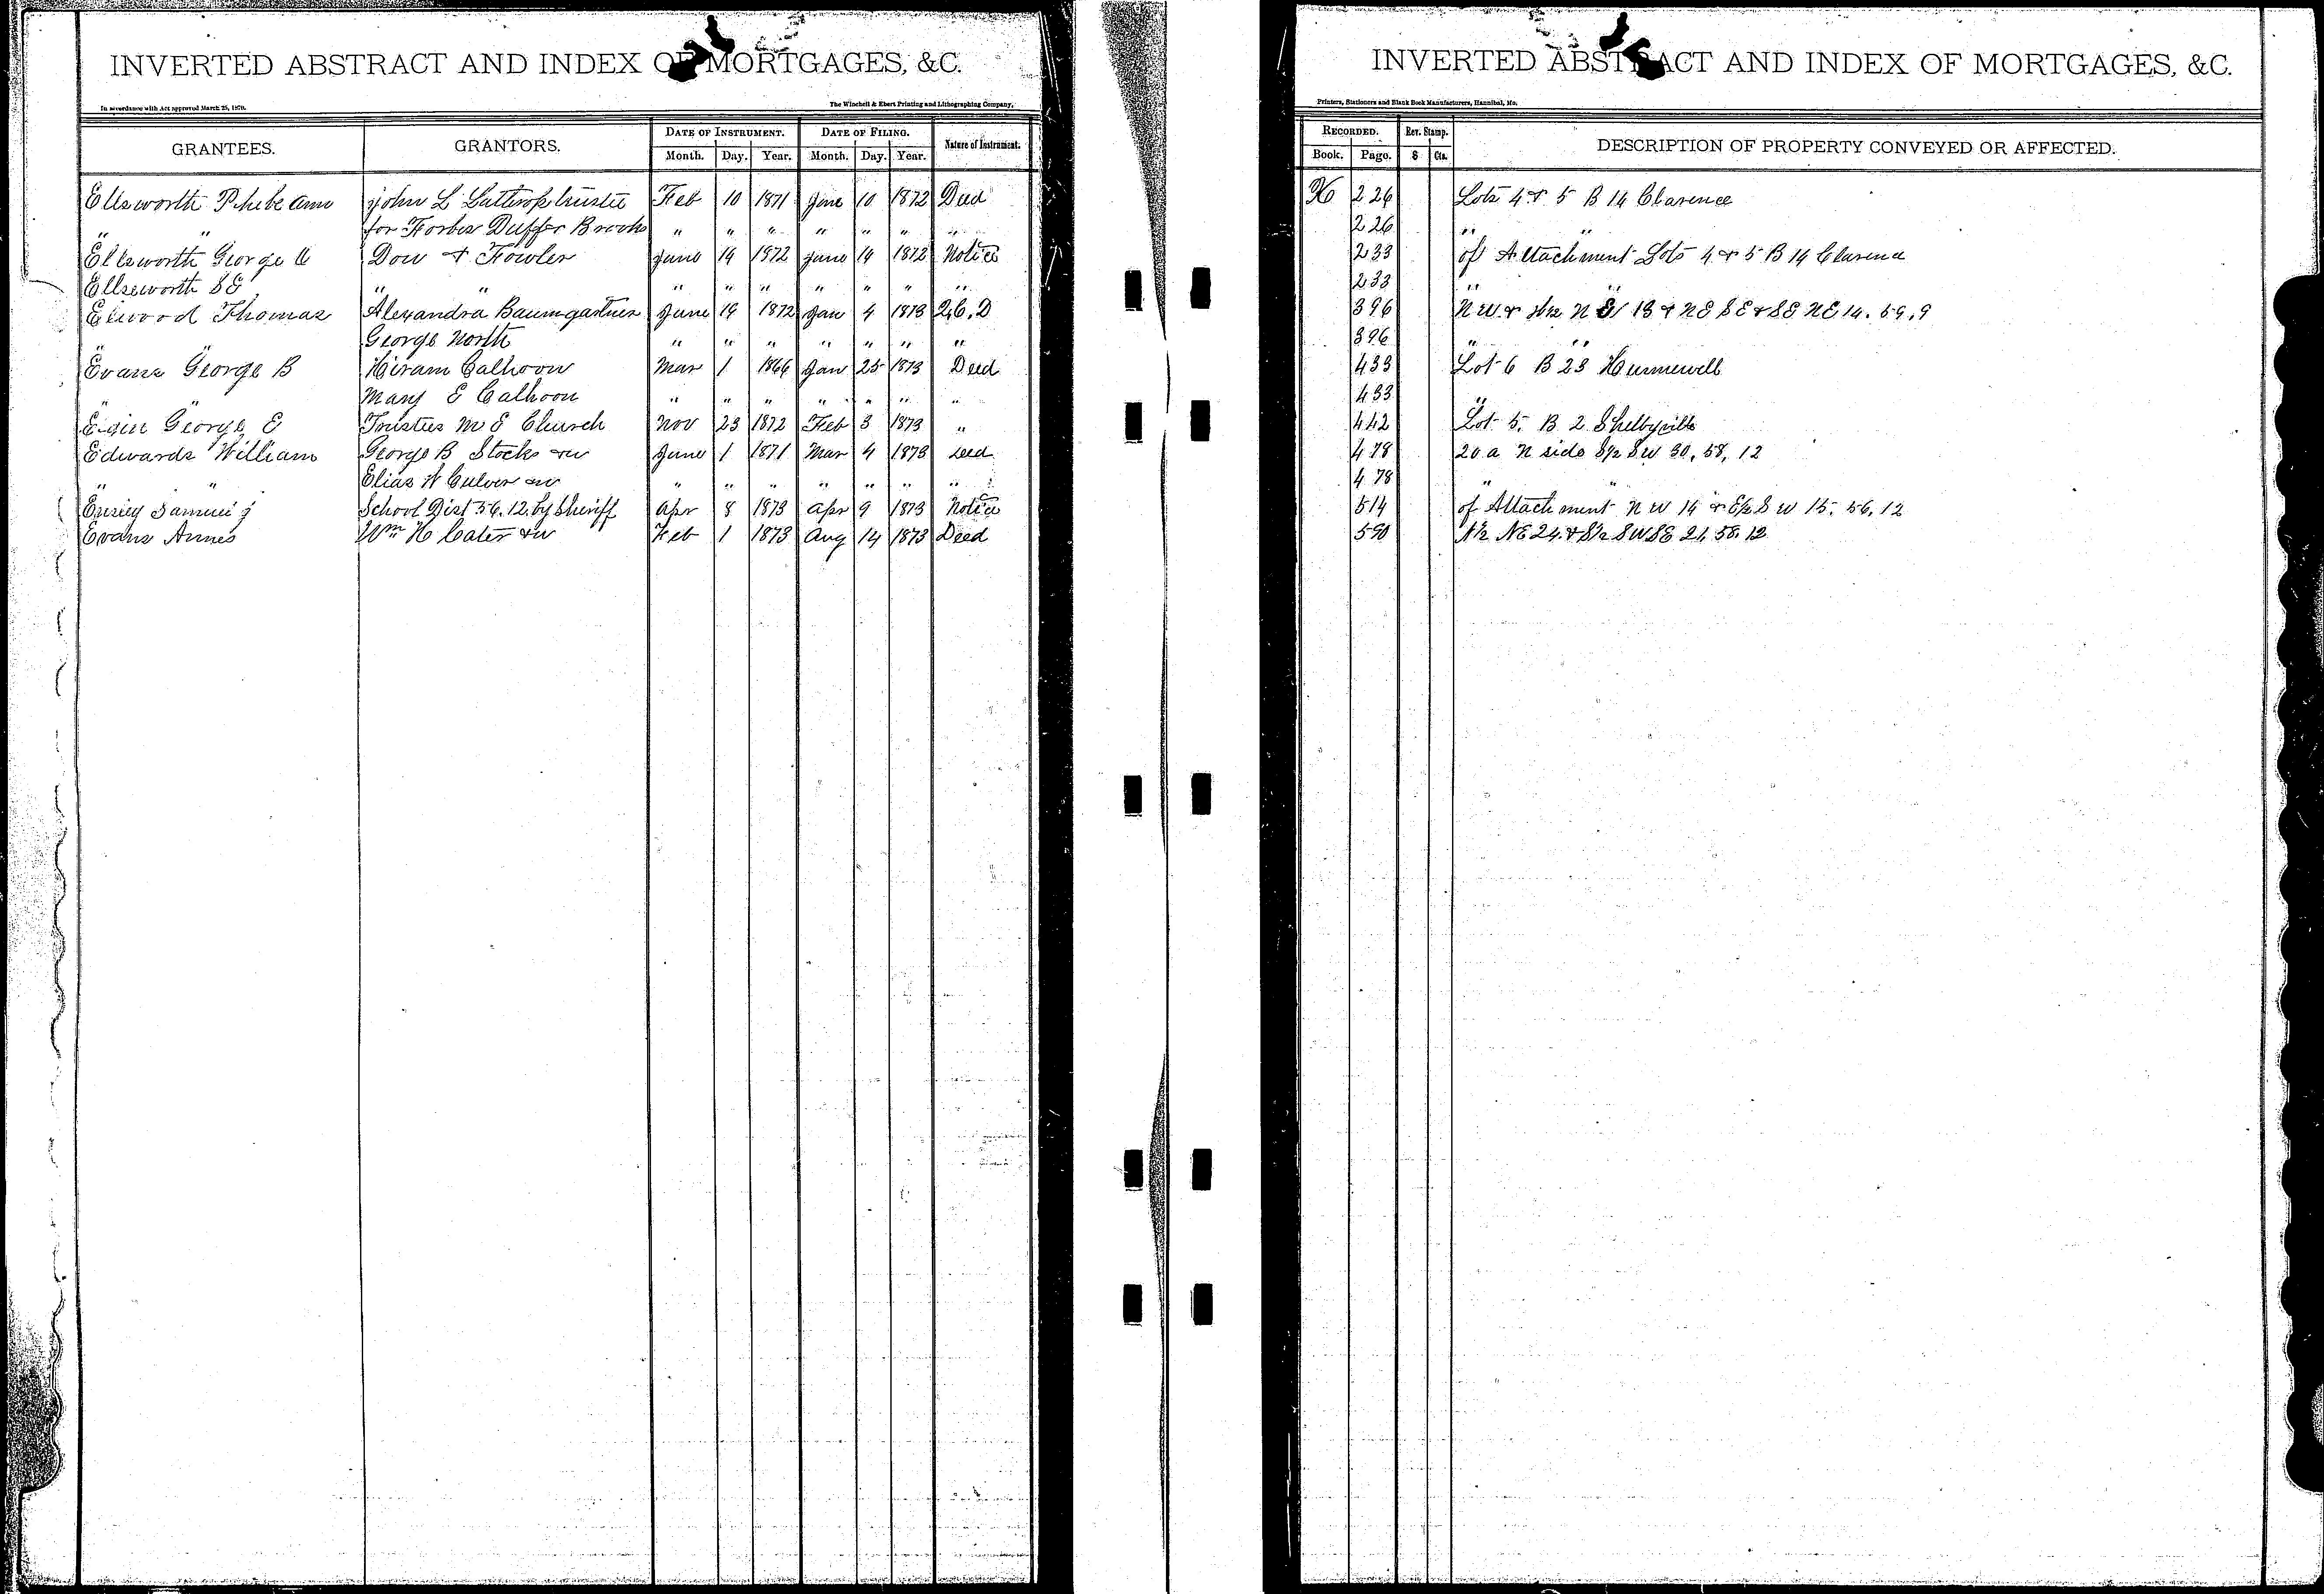 INVERTED ABSTRACT AND INDEX OF MORTGAGES, &C.
In accordance with Act approved March 25, 1870. The Winchell & Ebert Printing and Lithographing Company,
GRANTEES. GRANTORS. DATE OF INSTRUMENT. DATE OF FILING. Nature of Instrument.
Month. Day. Year. Month. Day. Year.
Ellsworth Phebe Ann John L Lathrop trustee Feb 10 1871 June 10 1872 Deed
" " for Forbes Duffer Brooks " " " " " " "
Ellsworth George Dow & Fowler June 14 1872 June 14 1872 Notice
Ellseworth SE " " " " " " " " "
Elwood Thomas Alexandra Baumgartner June 19 1872 Jan 4 1873 2.C.D
" " George North " " " " " " "
Evans George B Hiram Calhoon Mar 1 1866 Jan 25 1873 Deed
" " Mary E Calhoon " " " " " " "
George E Trustees M E Church Nov 23 1872 Feb 3 1873 "
Edwards William George B Stocks &w June 1 1871 Mar 4 1873 Deed
" " Elias N Culver &w " " " " " " "
Samuel J School Dist 56.12. by Sheriff Apr 8 1873 Apr 9 1873 Notice
Evans Annes Wm H Cater &w Feb 1 1873 Aug 14 1873 Deed
INVERTED ABSTRACT AND INDEX OF MORTGAGES, &C.
Printers, Stationers and Blank Book Manufacturers, Hannibal, Mo.
RECORDED. Rev. Stamp. DESCRIPTION OF PROPERTY CONVEYED OR AFFECTED.
Book. Page. $ Cts.
226 Lots 4 & 5 B 14 Clarence
226 " "
233 of Attachment Lots 4 & 5 B 14 Clarence
233 " "
396 NW & N E 13 & NE SE & SE NE 14. 59, 9
396 " "
433 Lot 6 B 23 Hunnewell
433 "
442 Lot 5, B 2 Shelbyville
478 20 a N side S½ SW 30, 58, 12
478 " "
514 of Attachment NW 14 & E½ SW 15. 56, 12
590 N½ NE 24. & S½ SWSE 21, 58, 12